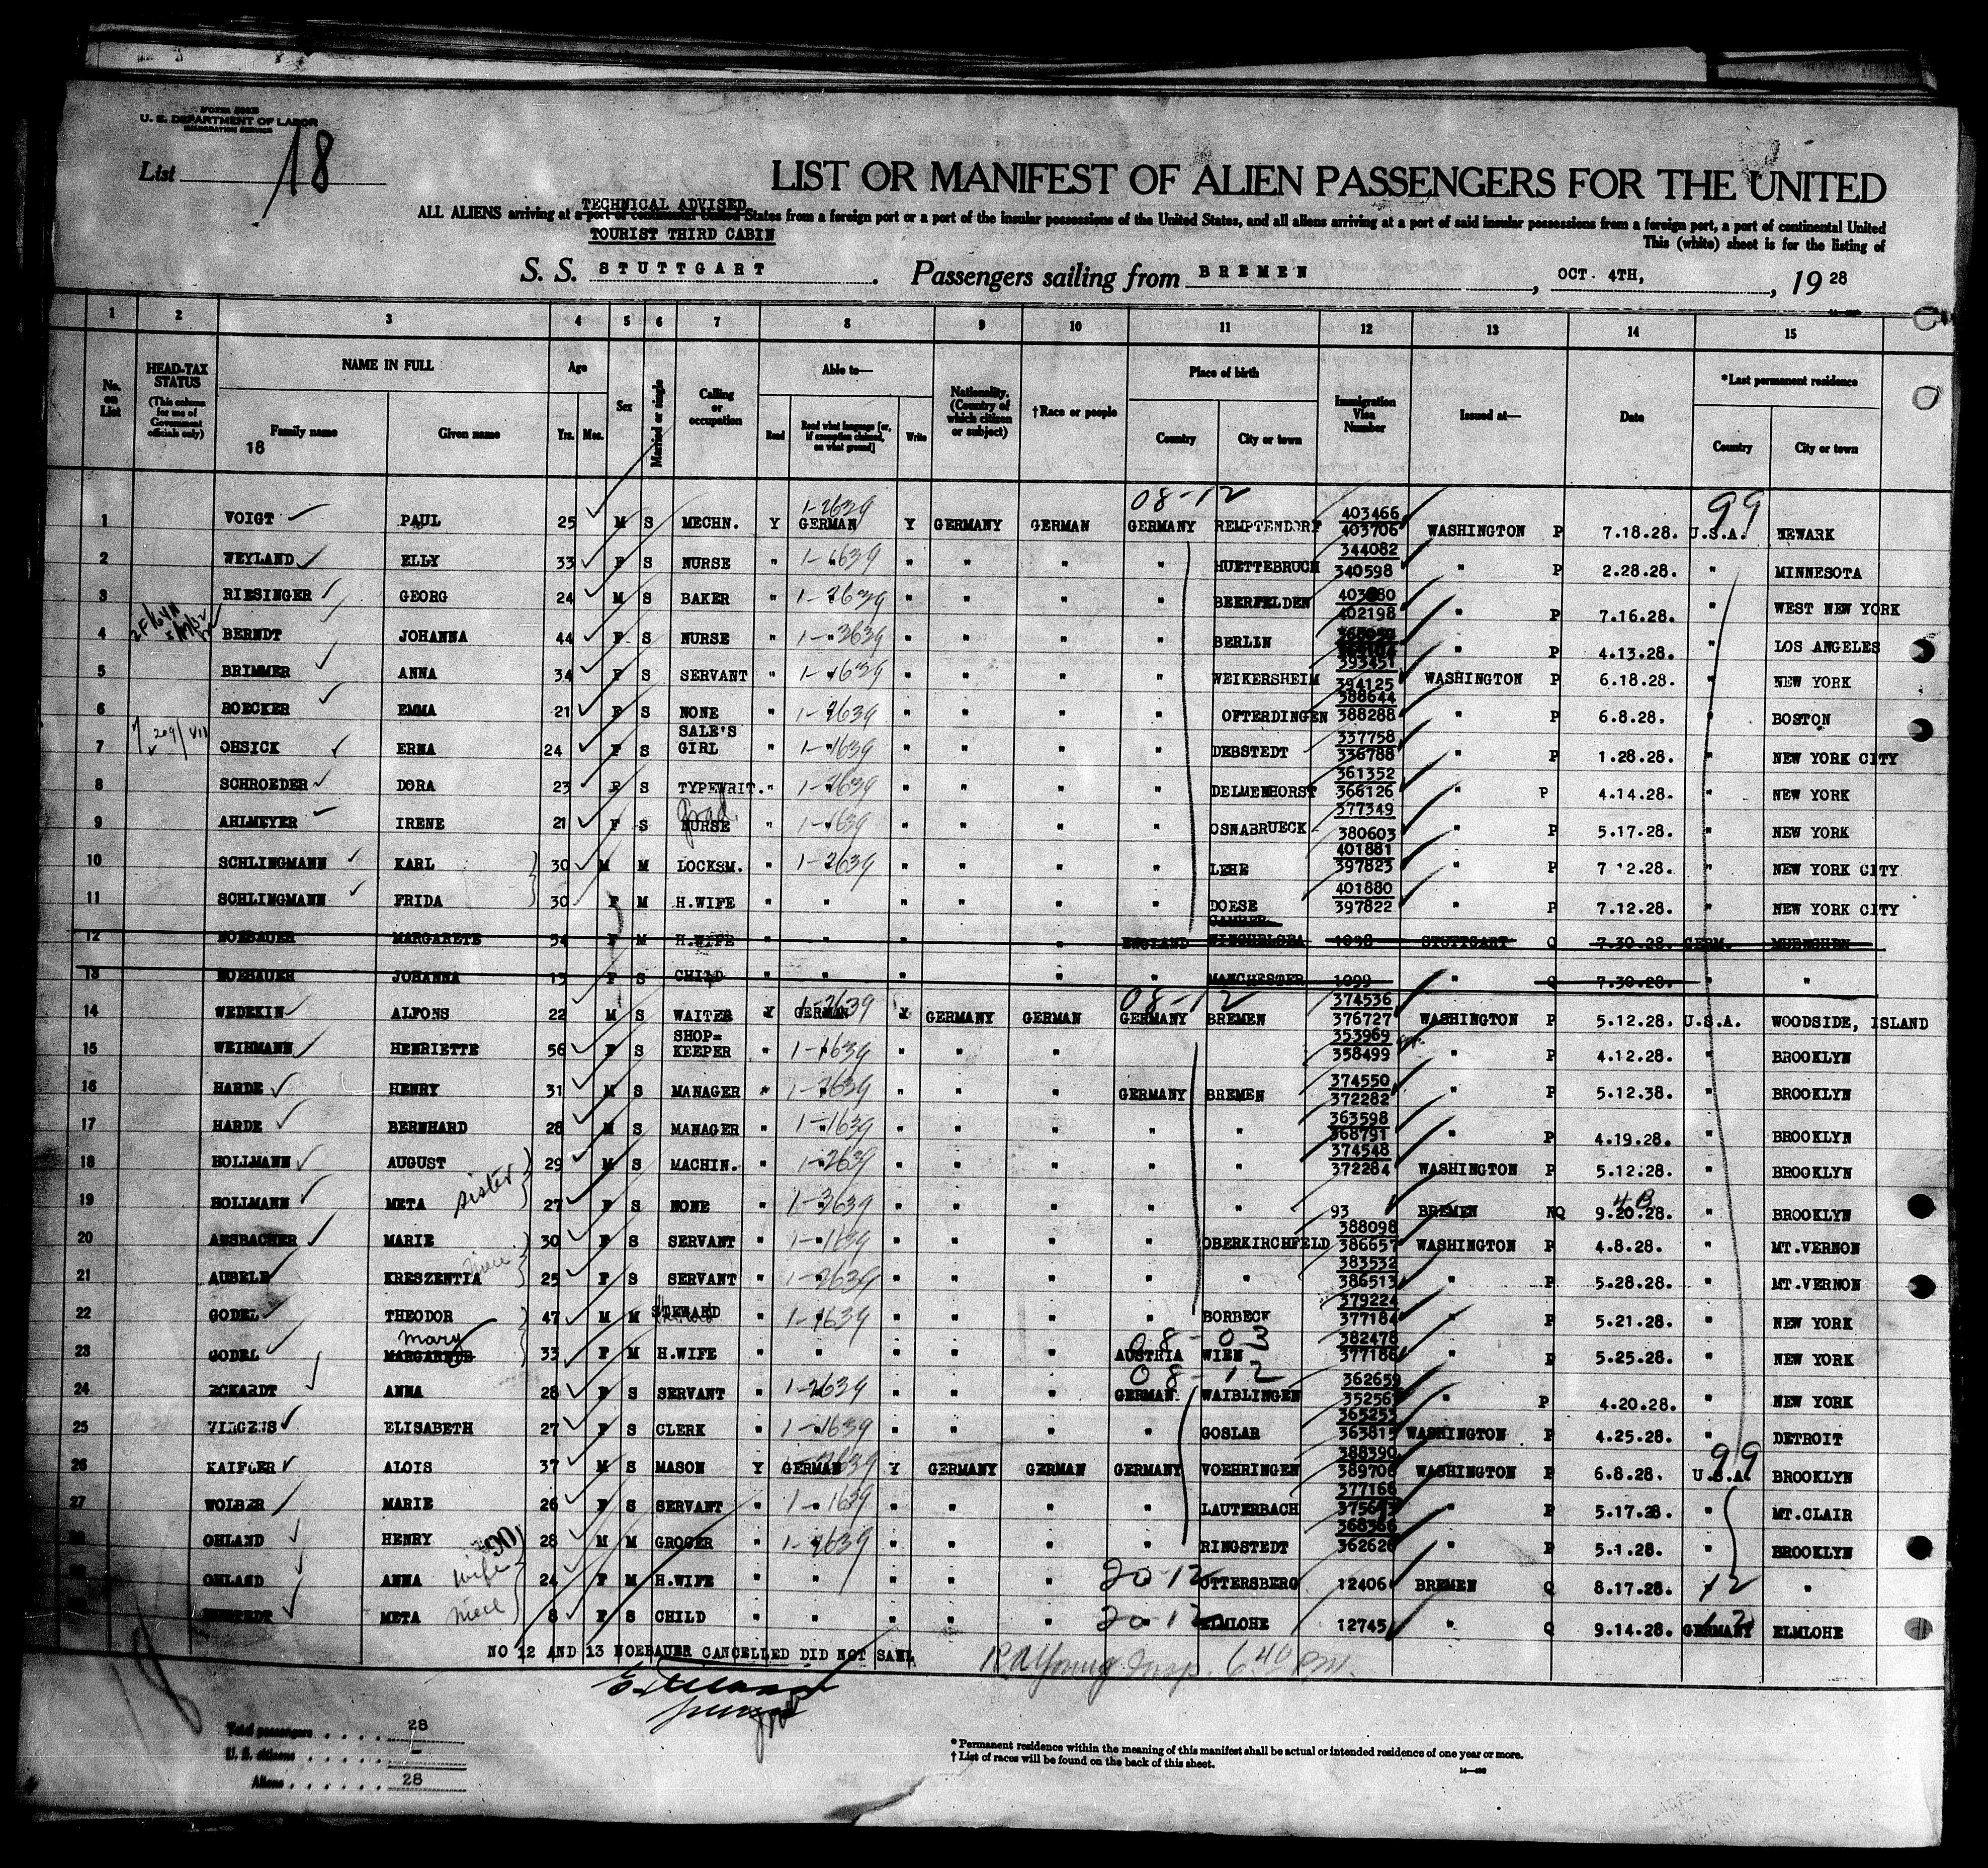 FORM 500B
U. S. DEPARTMENT OF LABOR
IMMIGRATION SERVICE
List 18
LIST OR MANIFEST OF ALIEN PASSENGERS FOR THE UNITED
TECHNICAL ADVISED
ALL ALIENS arriving at a port of continental United States from a foreign port or a port of the insular possessions of the United States, and all aliens arriving at a port of said insular possessions from a foreign port, a port of continental United
TOURIST THIRD CABIN
This (white) sheet is for the listing of
S. S. STUTTGART. Passengers sailing from BREMEN, OCT. 4TH, 1928
1 2 3 4 5 6 7 8 9 10 11 12 13 14 15
No. on List
HEAD-TAX STATUS (This column for use of Government officials only)
NAME IN FULL
Family name Given name
18
Age Yrs. Mos.
Sex
Married or single
Calling or occupation
Able to—
Read Read what language [or, if exemption claimed, on what ground] Write
Nationality. (Country of which citizen or subject)
†Race or people
Place of birth
Country City or town
Immigration Visa Number
Issued at—
Date
*Last permanent residence
Country City or town
1-2639 08-12 403466 99
1 VOIGT PAUL 25 M S MECHN. Y GERMAN Y GERMANY GERMAN GERMANY REMPTENDORF 403706 WASHINGTON P 7.18.28. U.S.A. NEWARK
344082
2 WEYLAND ELLY 33 F S NURSE " " " " " HUETTEBRUCH 340598 " P 2.28.28. " MINNESOTA
3 RIESINGER GEORG 24 M S BAKER " 1-2639 " " " " BEERFELDEN 402198 " P 7.16.28. " WEST NEW YORK
4 BERNDT JOHANNA 44 F S NURSE " 1-3639 " " " " BERLIN P 4.13.28. " LOS ANGELES
393451
5 BRIMMER ANNA 34 F S SERVANT " 1-1639 " " " " WEIKERSHEIM 394125 WASHINGTON P 6.18.28. " NEW YORK
388644
6 BOECKER EMMA 21 F S NONE " 1-2639 " " " " OFTERDINGEN 388288 " P 6.8.28. " BOSTON
SALE'S 337758
7 OHSICK ERNA 24 F S GIRL " 1-1639 " " " " DEBSTEDT 336788 " P 1.28.28. " NEW YORK CITY
361352
8 SCHROEDER DORA 23 F S TYPEWRIT. " 1-2639 " " " " DELMENHORST 366126 " P 4.14.28. " NEW YORK
Grad. 377349
9 AHLMEYER IRENE 21 F S NURSE " 1-1639 " " " " OSNABRUECK 380603 " P 5.17.28. " NEW YORK
401881
10 SCHLINGMANN KARL 30 M M LOCKSM. " 1-2639 " " " " LEHE 397823 " P 7 12.28. " NEW YORK CITY
401880
11 SCHLINGMANN FRIDA 30 F M H.WIFE " " " " " " DOESE 397822 " P 7.12.28. " NEW YORK CITY
12 NOEBAUER MARGARETE 54 F M H.WIFE " " " ENGLAND WINCHELSEA 1098 STUTTGART Q 7.30.28. GERM. MUENCHEN
13 NOEBAUER JOHANNA 13 F S CHILD " " " " " MANCHESTER 1099 " Q 7.30.28. " "
1-2639 08-12 374536
14 WEDEKIN ALFONS 22 M S WAITER Y GERMAN Y GERMANY GERMAN GERMANY BREMEN 376727 WASHINGTON P 5.12.28. U.S.A. WOODSIDE, ISLAND
SHOP= 353969
15 WEIHMANN HENRIETTE 56 F S KEEPER " 1-1639 " " " 358499 " P 4.12.28. " BROOKLYN
374550
16 HARDE HENRY 31 M S MANAGER " 1-2639 " " " GERMANY BREMEN 372282 " P 5.12.38. " BROOKLYN
363598
17 HARDE BERNHARD 28 M S MANAGER " 1-1639 " " " " " 368791 " P 4.19.28. " BROOKLYN
374548
18 HOLLMANN AUGUST 29 M S MACHIN. " 1-2639 " " " " " 372284 WASHINGTON P 5.12.28. " BROOKLYN
sister 4B
19 HOLLMANN META 27 F S NONE " 1-3639 " " " " " 93 BREMEN NQ 9.20.28. " BROOKLYN
388098
20 ANSBACHER MARIE 30 F S SERVANT " 1-1639 " " " " OBERKIRCHFELD 386657 WASHINGTON P 4.8.28. " MT.VERNON
niece 383532
21 AUBELE KRESZENTIA 25 F S SERVANT " 1-2639 " " " " " 386513 " P 5.28.28. " MT.VERNON
379224
22 GODEL THEODOR 47 M M STEWARD " 1-1639 " " " " BORBECK 377184 " P 5.21.28. " NEW YORK
Mary 08-03 382478
23 GODEL MARGARETE 33 F M H.WIFE " " " " " AUSTRIA WIEN 377186 " P 5.25.28. " NEW YORK
08-12 362659
24 ECKARDT ANNA 28 F S SERVANT " 1-2639 " " " GERMAN. WAIBLINGEN 352567 " P 4.20.28. " NEW YORK
365253
25 ELISABETH 27 F S CLERK " 1-1639 " " " " GOSLAR 363815 WASHINGTON P 4.25.28. " DETROIT
388390 99
26 ALOIS 37 M S MASON Y GERMAN Y GERMANY GERMAN GERMANY VOEHRINGEN 389706 WASHINGTON P 6.8.28. U.S.A. BROOKLYN
377166
27 WOLBER MARIE 26 F S SERVANT " 1-1639 " " " " LAUTERBACH P 5.17.28 " MT.CLAIR
368366
OHLAND HENRY 28 M M GROCER " 1-2639 " " " " RINGSTEDT 362626 " P 5.1.28. " BROOKLYN
wife
OHLAND ANNA 24 F M H.WIFE " " " " " 20-12 OTTERSBERG 12406 BREMEN Q 8.17.28. 12 "
niece
META 8 F S CHILD " " " " " 20-12 ELMLOHE 12745 " Q 9.14.28. GERMANY ELMLOHE
NO 12 AND 13 NOEBAUER CANCELLED DID NOT SAIL
R A Young Insp. 640 pm.
Total passengers . . . . . 28
U. S. citizens . . . . . . -
Aliens . . . . . . 28
* Permanent residence within the meaning of this manifest shall be actual or intended residence of one year or more.
† List of races will be found on the back of this sheet.